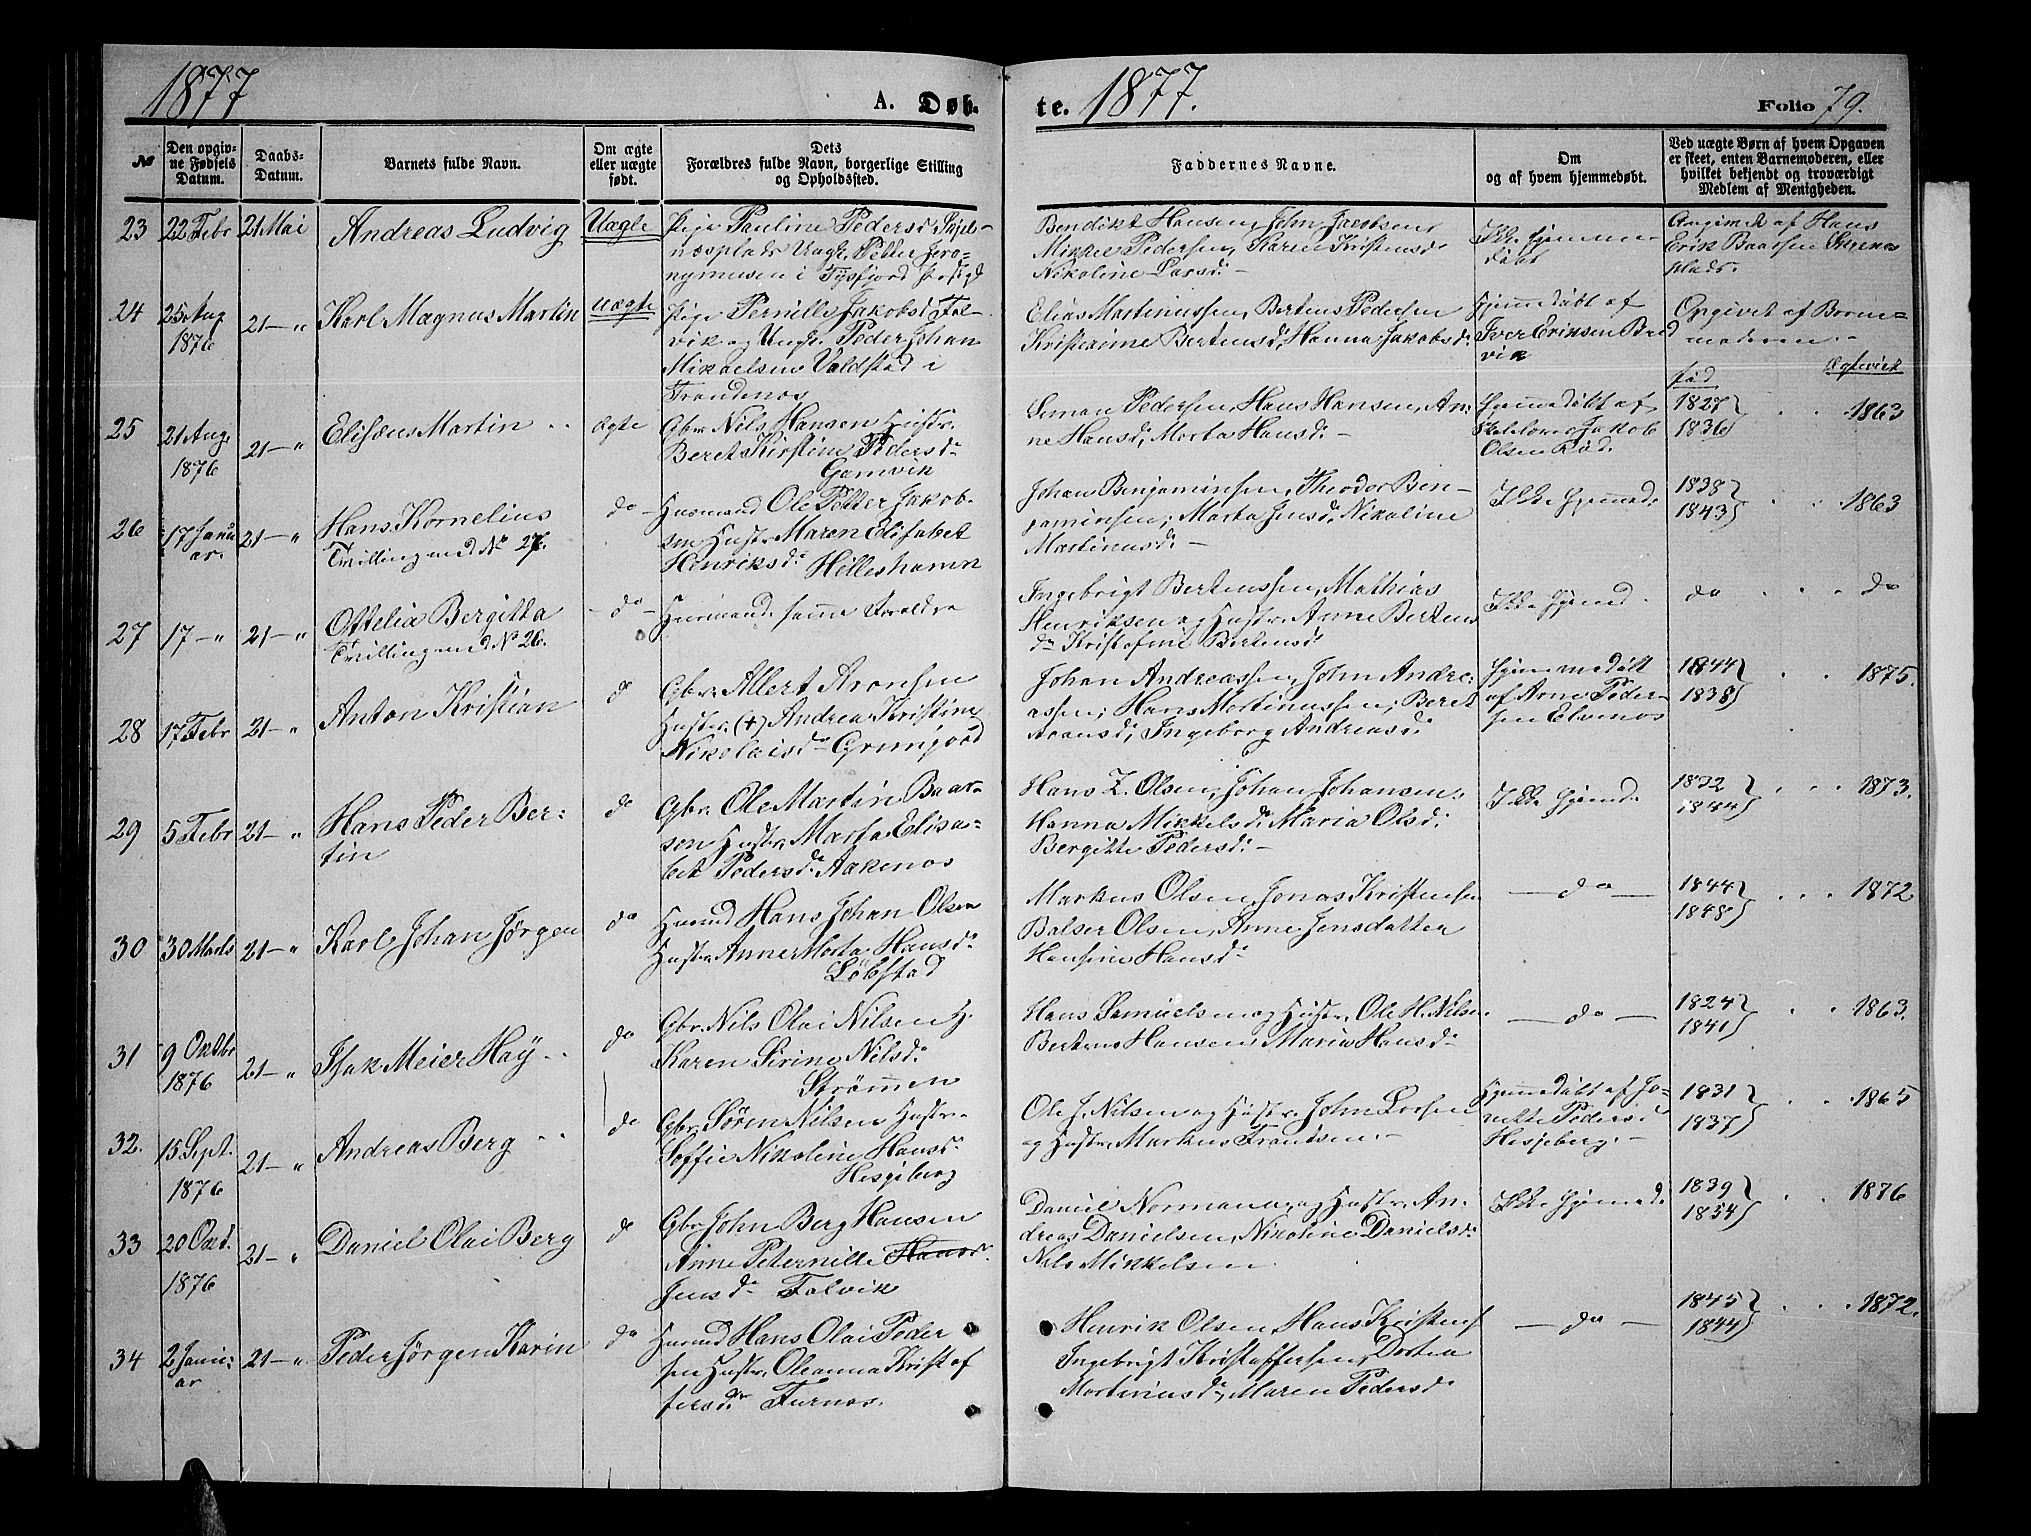 1877 A. Døb-
te. 1877. Folio 79.
No
Den opgiv-
ne Fødsels
Datum.
Daabs-
Datum.
Barnets fulde Navn.
Om ægte
eller uægte
født.
Dets
Forældres fulde Navn, borgerlige Stilling
og Opholdssted.
Faddernes Navne.
Om
og af hvem hjemmedøbt.
Ved uægte Børn af hvem Opgaven
er skeet, enten Barnemoderen, eller
hvilket bekjendt og troværdigt
Medlem af Menigheden.
23 22 Febr 21 Mai Andreas Ludvig Uægte
Pige Pauline Pedersd
Ungk. Petter Jero-
nymusen i Tysfjord
Bendikt Hansen, John Jacobsen,
Mikkel Pedersen, Karen Kristensd
Nikoline Larsd. -
Ikke hjemme
døbt
Angivet af Hans
Erik Baarsen
plads.
24 25 Aug
1876
21 - " Karl Magnus Martin Uægte
Pige Pernille Jakobsd Fal-
vik og Ungk. Peder Johan
Mikaelsen Valdstad i
Trondenos
Elias Martinussen, Bertens Pedersen
Kristianne Bertensd, Hanna Jakobsd.
Hjemmedøbt af
Iver Eriksen Bred
vik
Opgivet af Barne-
moderen. -
Fød
Ægteviet
25 21 Aug.
1876
21 - " Elisæus Martin ægte
Gbr Nils Hansen Hustr.
Beret Kirstine Pedersd
Gamvik
Simon Pedersen, Hans Hansen, An-
ne Hansd, Marta Hansd. -
Hjemmedøbt af
Skolelærer Jakob
Olsen Rød.
1827
1836
1863
26 17 Janu
ar.
21 - " Hans Kornelius
Tvilling med No 27.
do
Husmand Ole Petter Jakob-
sen Hustr Maren Elisabet
Henriksd. Helleshamn
Johan Benjaminsen, Theodor Ben-
jaminsen, Marta Jensd. Nikoline
Martinusd.
Ikke hjemmed.
1838
1843
1863
27 17 - " 21 - " Ottelia Bergitta
Tvilling med No 26.
- do -
Husmand. samme Forældre
Ingebrigt Bertenssen, Mathias
Henriksen og Hustr. Anne Bertens
d. Kristofine Bertensd.
Ikke hjemmed.
do do
28 17 Febr 21 - " Anton Kristian do
Gbr. Albert Aronsen
Hustr. (+) Andrea Kristine
Nikolaisd. Grunfjord
Johan Andreassen, John Andre-
assen, Hans Martinussen, Beret
Aronsd, Ingeborg Andreasd.
Hjemmedøbt
af Arne Peder-
sen Elvenos
1844
1838
1875.
29 5 Febr 21 - " Hans Peder Ber-
tin
do
Gbr. Ole Martin Baar-
sen Hustr Marta Elisa-
bet Pedersd. Aakenos
Hans Z. Olsen, Johan Johansen,
Hanna Mikkelsd. Maria Olsd.
Bergitte Pedersd. -
Ikke hjemd.
1832
1844
1873.
30 30 Marts 21 - " Karl Johan Jørgen do
Husmd Hans Johan Olsen
Hustr. Anne Marta Hansd.
Løbstad
Markus Olsen, Jonas Kristensen
Balser Olsen, Anne Jensdatter
Hansine Hansd.
- do -
1844
1848
1872
31 9 Oktbr
1876
21 - " Isak Meier Høy do
Gbr. Nils Olai Nilsen H.
Karen Sirine Nilsd.
Strømmen
Hans Samuelsen og Hustr. Ole H. Nilsen
Bertens Hansen, Maria Hansd.
- do -
1824
1841
1863.
32. 15 Sept.
1876
21 - " Andreas Berg do
Gbr. Søren Nilsen Hustr.
Soffie Nikoline Hansd.
Hesjeberg
Ole J. Nilsen og Hustr. John
og Hustr. Markus Frantsen. -
Hjemmedøbt af
Pedersd
Hesjeberg. -
1831
1837
1865
33 20 Okt.
1876
21 - " Daniel Olai Berg do
Gbr. John Berg Hansen
Anne Peternille Hans
Jensd. Falvik
Daniel Normann, og Hustr. An-
dreas Danielsen, Nikoline Danielsd.
Nils Mikkelsen.
Ikke hjemmed.
1839
1854
1876
34 2 Janu-
ar
21 - " Peder Jørgen Karin do
Husmd Hans Olai Peder
sen Hustr. Oleanna Kristof
fersd. Furnes.
Henrik Olsen, Hans Kristens
Ingebrigt Kristoffersen, Dortea
Martinusd, Maren Pedersd.
- do -
1845
1844
1872.